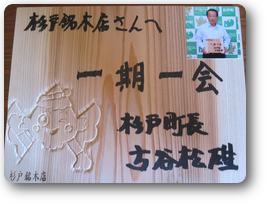 杉戸銘木店さんへ
一期一会
杉戸町長
古谷松雄
杉戸銘木店